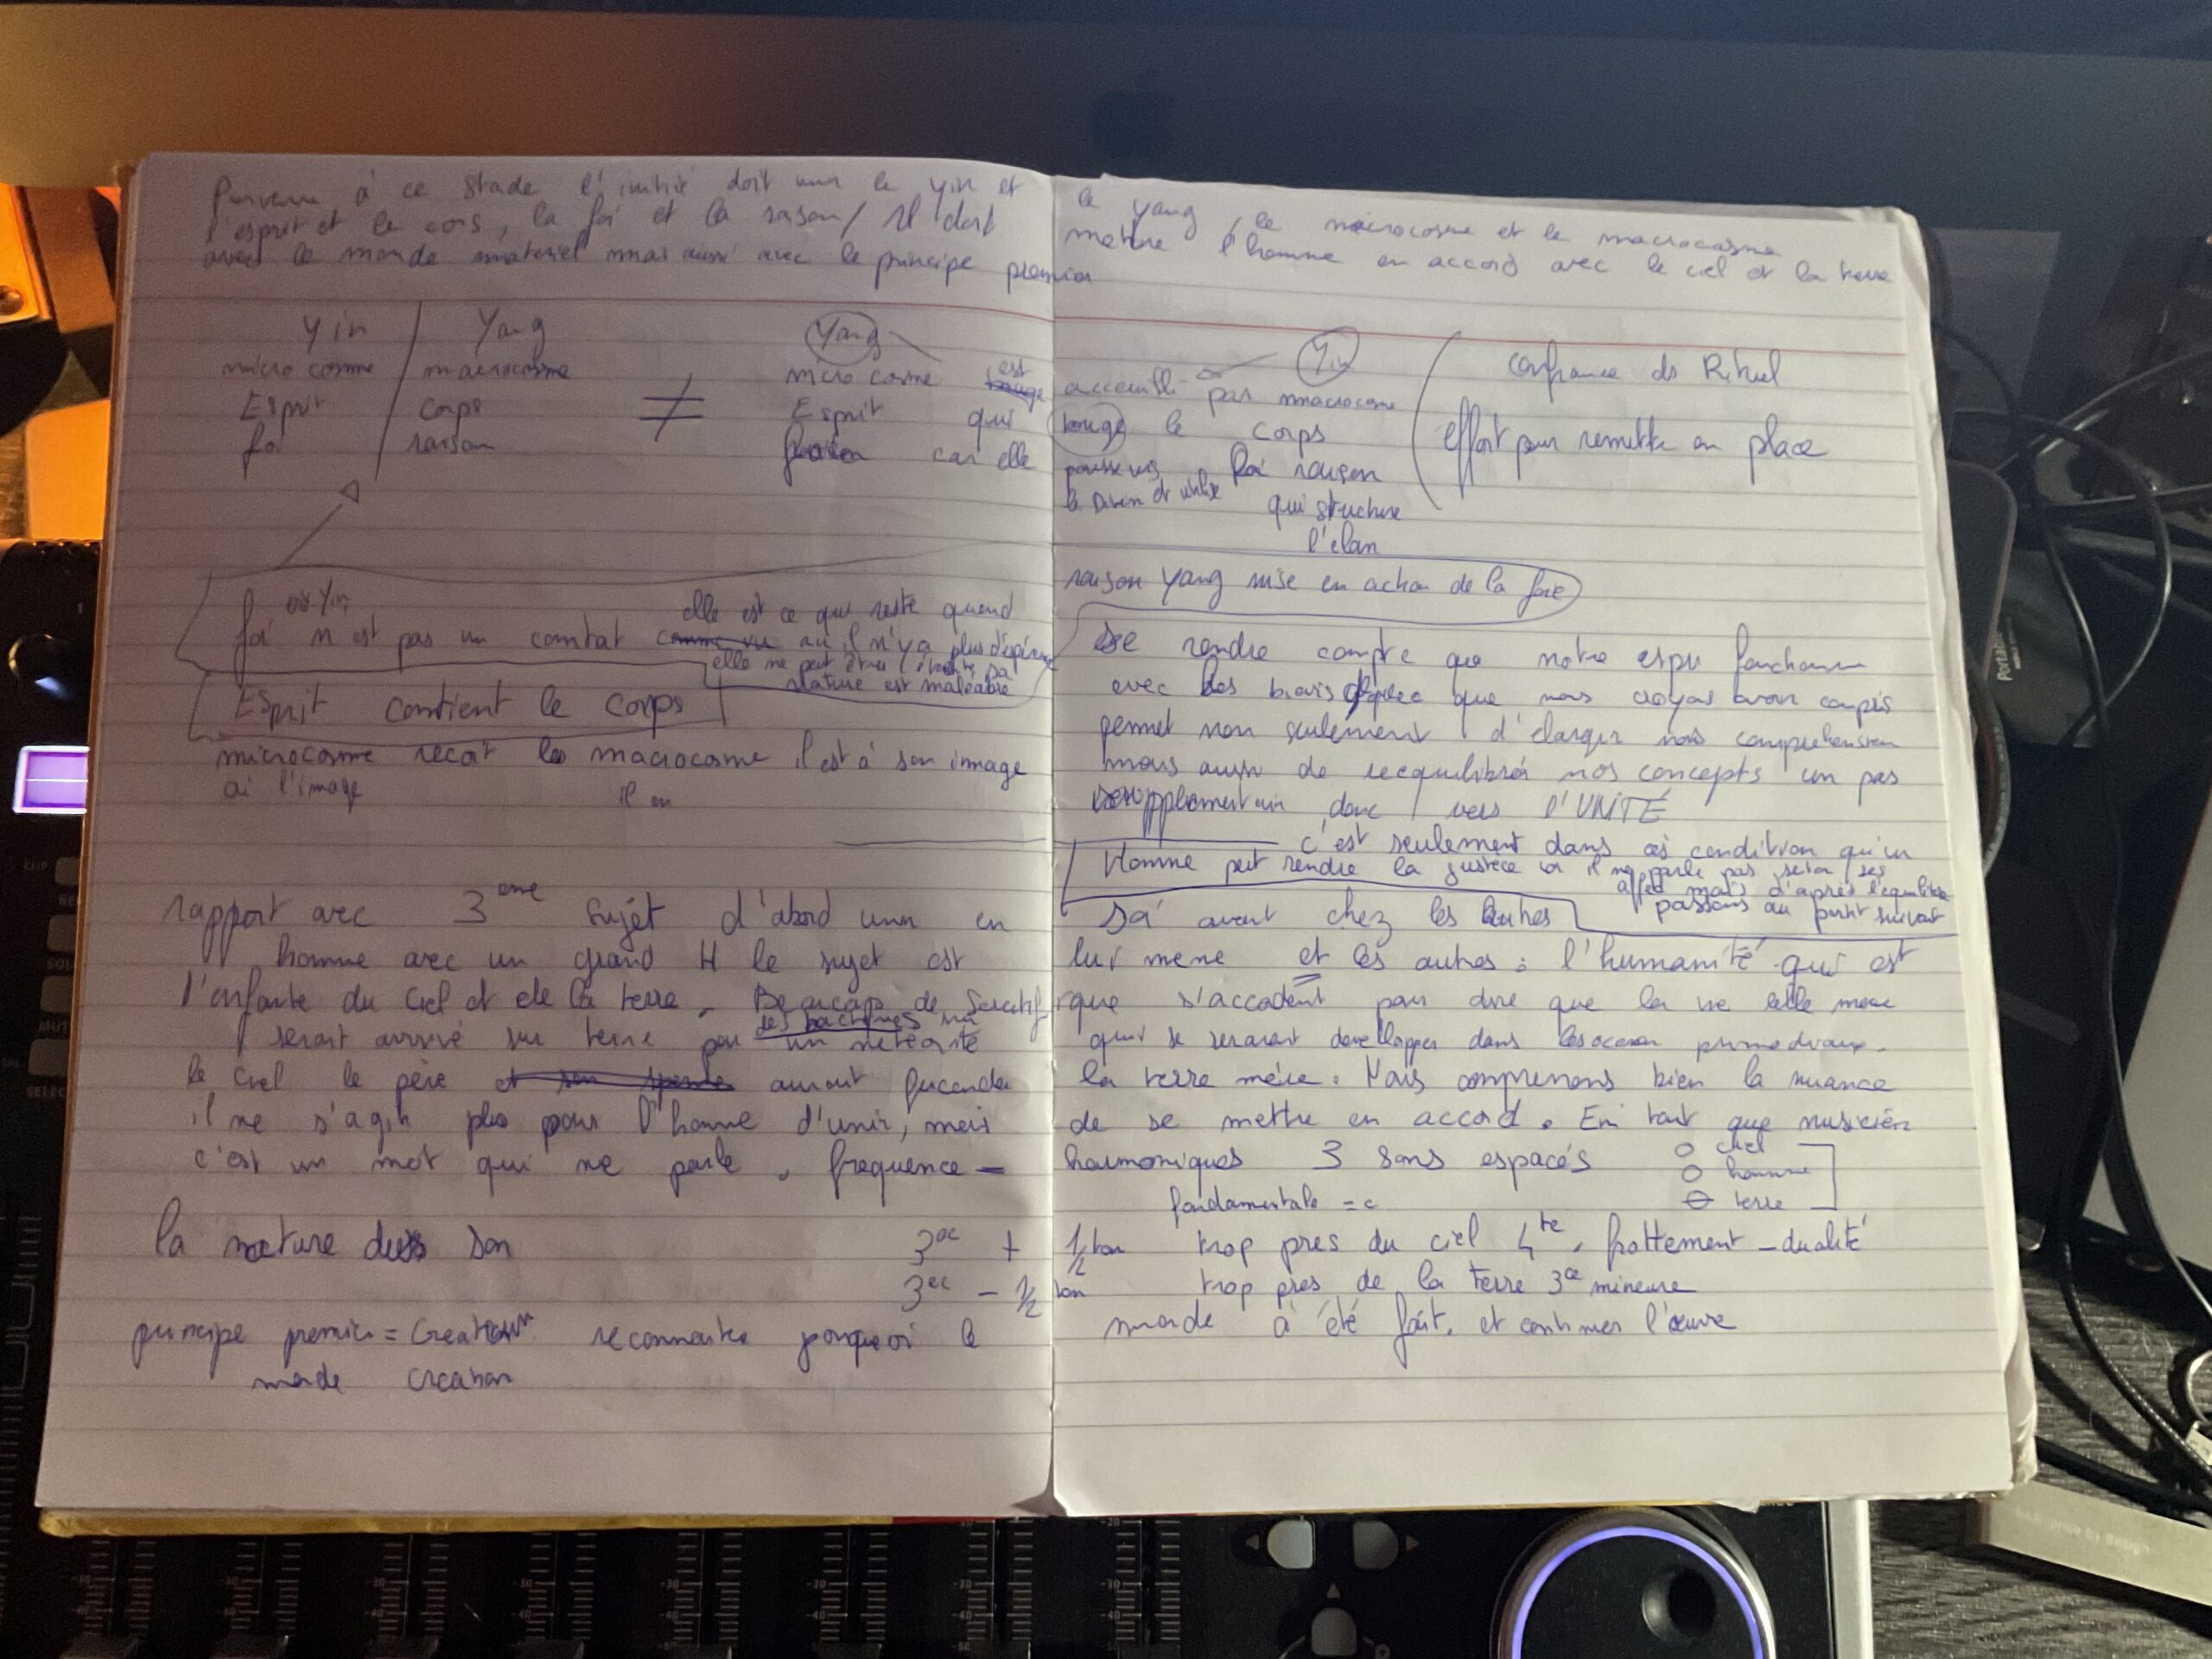 Parvenu à ce stade l'initié doit unir le yin et le yang, le microcosme et le macrocosme
l'esprit et le cors, la foi et la raison / Il doit mettre l'homme en accord avec le ciel et la terre
avec le monde matériel mais aussi avec le principe premier
Yin Yang ≠ Yang Yin
micro cosme macrocosme micro cosme est accueilli par macrocosme
Esprit corps Esprit qui bouge le corps
foi raison car elle pousse vers la raison
le Divin et utilise qui structure
l'élan
confiance ds Rituel
effort pour remettre en place
raison Yang mise en action de la foie
foi n'est pas un combat elle est ce qui reste quand
il n'y a plus d'espérance
elle ne peut être sa
nature est maléable
Esprit contient le corps
microcosme recoit le macrocosme il est à son image
ai l'image il en
Se rendre compte que notre espri
avec des biais que nous croyons avoir compris
permet non seulement d'élargir nos compréhension
mais aussi de reequilibrer nos concepts un pas
supplementair donc vers l'UNITÉ
c'est seulement dans ces condition qu'un
Homme peut rendre la justece il ne parle pas selon ses
mais d'après l'equilibre
passons au point suivant
rapport avec 3eme sujet d'abord unir en soi avant chez les autres
homme avec un grand H le sujet est lui mene et les autres : l'humanité qui est
l'enfante du ciel et de la terre. Beaucoup de scientifique s'accodent pour dire que la vie elle meme
des bactéries
serait arrivé sur terre par un méteorite qui se seraient developper dans les ocean primordiaux.
le ciel le père et son sperme aurait fecondé la terre mère. Mais comprenons bien la nuance
il ne s'agit plus pour l'homme d'unir, mais de se mettre en accord. En tant que musicien
c'est un mot qui me parle. frequence – harmoniques 3 sons espacés
ciel
homme
terre
fondamentale = c
la nature des son 3ce + 1/2 ton trop pres du ciel 4te. frottement – dualité
3ce – 1/2 ton trop pres de la terre 3ce mineure
principe premier = Createur reconnaitre pourquoi le monde à été fait. et continuer l'œuvre
monde creation